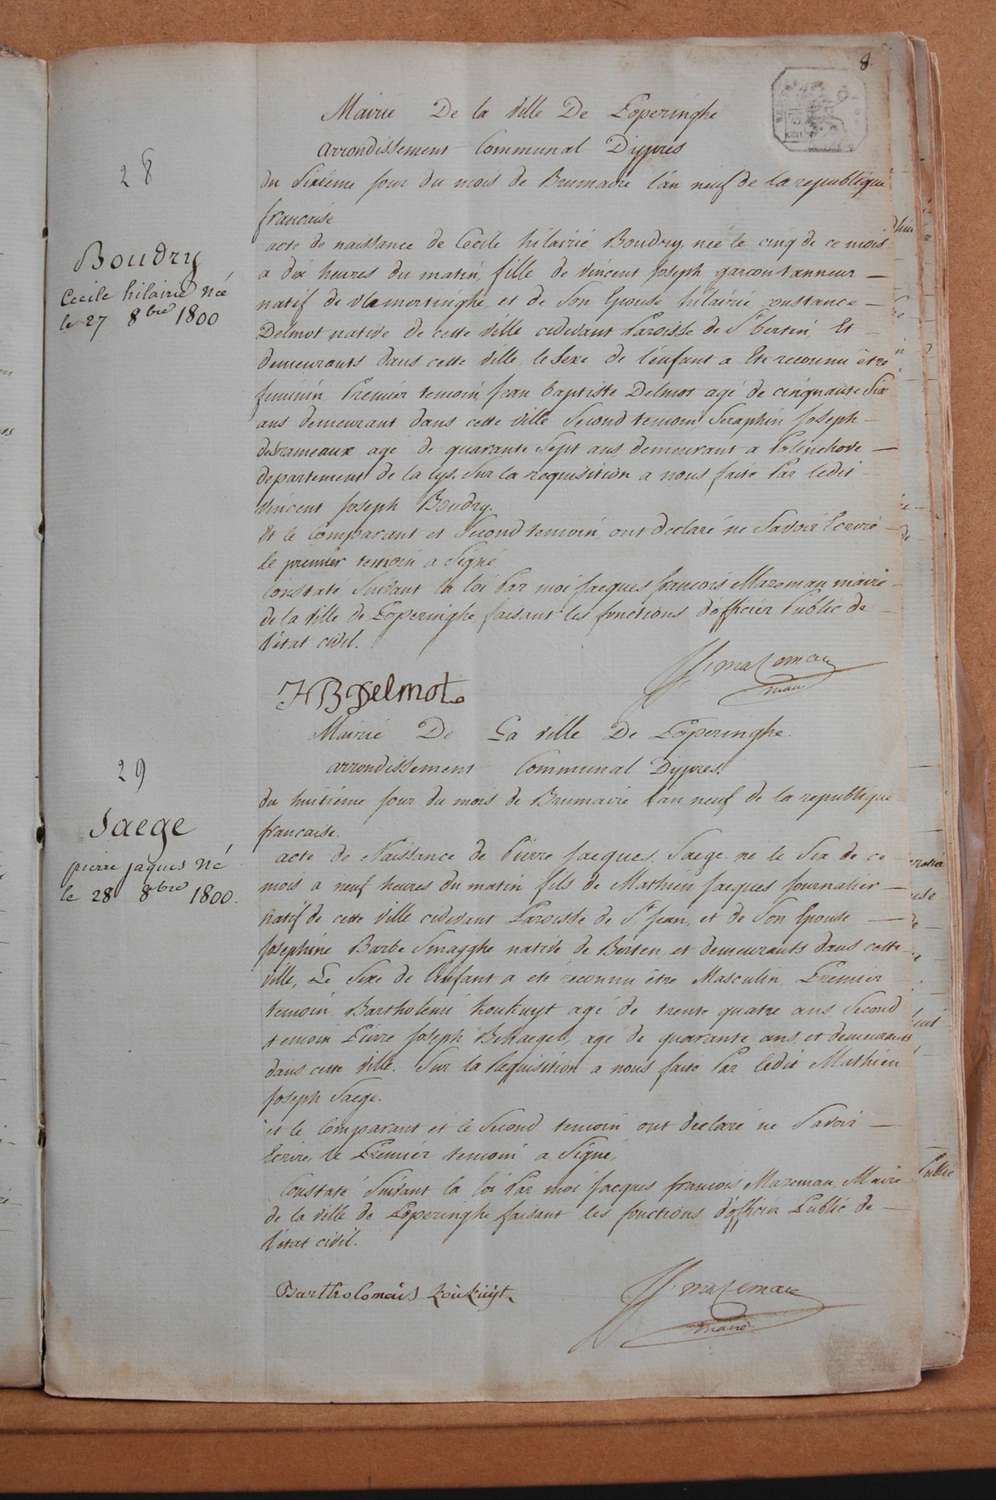 8
Mairie De la ville De Poperinghe
arrondissement Communal Dypres
28
du Sixiéme jour du mois de Brumaire l'an neuf de la republique
francaise
Boudry
Cecile hilairie né
le 27 8bre 1800
acte de naissance de Cecile hilairie Boudry, née le cinq de ce mois
a dix heures du matin, fille de vincent joseph garcon tanneur —
natif de vlamertinghe, et de son Epouse hilairie constance —
Delmot native de cette ville cidevant Paroisse de St bertin Et —
demeurants dans cette ville, le sexe de l'enfant a Ete reconnu être
feminin, Premier temoin jean baptiste Delmot agé de cinquante Six
ans demeurant dans cette ville Second temoin Seraphin joseph —
desrameaux agé de quarante Sept ans demeurant a Polinchove —
departement de la lys. Sur la requisition a nous faite Par ledit
vincent joseph Boudry.
et le Comparant et Second temoin, ont declaré ne Savoir Ecrire
le premier temoin a Signé
Constaté Suivant la loi Par moi jacques francois Mazeman maire
de la ville de Poperinghe faisant les fonctions d'officier Public de —
l'état civil.
JF mazeman
maire
JB Delmot
Mairie De La ville De Poperinghe.
arrondissement Communal Dypres.
29
du huitiéme jour du mois de Brumaire l'an neuf de la republique
francaise.
Saege
pierre jaques né
le 28 8bre 1800.
acte de Naissance de Pierre jacques Saege né le Six de ce
mois a neuf heures du matin fils de Mathieu jacques journalier —
natif de cette ville cidevant Paroisse de St jean, et de Son Epouse —
josephine Barbe Smagghe native de Berten et demeurants dans cette
ville, Le Sexe de l'enfant a eté reconnu être Masculin, Premier
temoin Bartholemi koukuyt agé de trente quatre ans Second
temoin Pierre joseph Behaegel, agé de quarante ans, et demeurants
dans cette ville. Sur la Requisition a nous faite Par ledit Mathieu
joseph Saege.
et le Comparant et le Second temoin ont declaré ne Savoir —
Ecrire, le Premier temoin a Signé,
Constaté Suivant la loi Par moi jacques francois Mazeman, Maire
de la ville de Poperinghe faisant les fonctions d'officier Public de —
l'état civil.
Bartholomeús koúkúijt
JF mazeman
maire